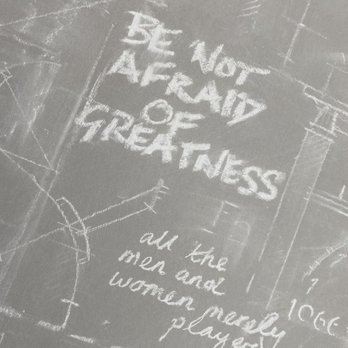 BE NOT
AFRAID
OF
GREATNESS
all the
men and
women merely
players
1066